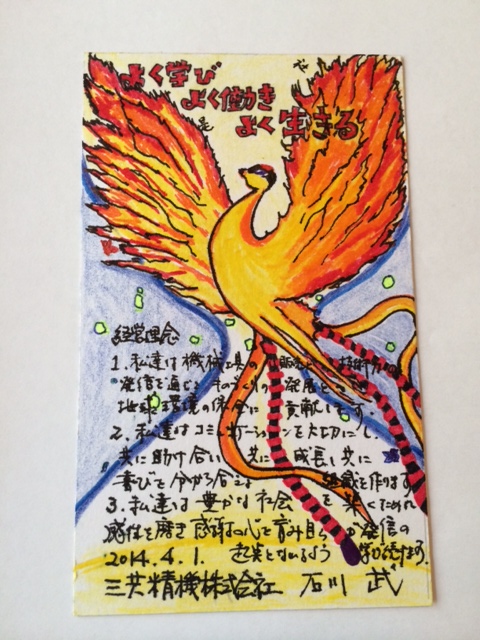 よく学び
よく働き
よく生きる
経営理念
1.私達は機械工具の販売と技術力の
発信を通じてものづくりの発展と
地球環境の保全に貢献します.
2.私達はコミュニケーションを大切にし
共に助け合い 共に成長し共に
喜びを分かち合える 組織を作ります
3.私達は豊かな社会を築くために
感性を磨き感謝の心を育み自らが発信の
2014.4.1. 起点となるよう学び続けます.
三共精機株式会社 石川 武